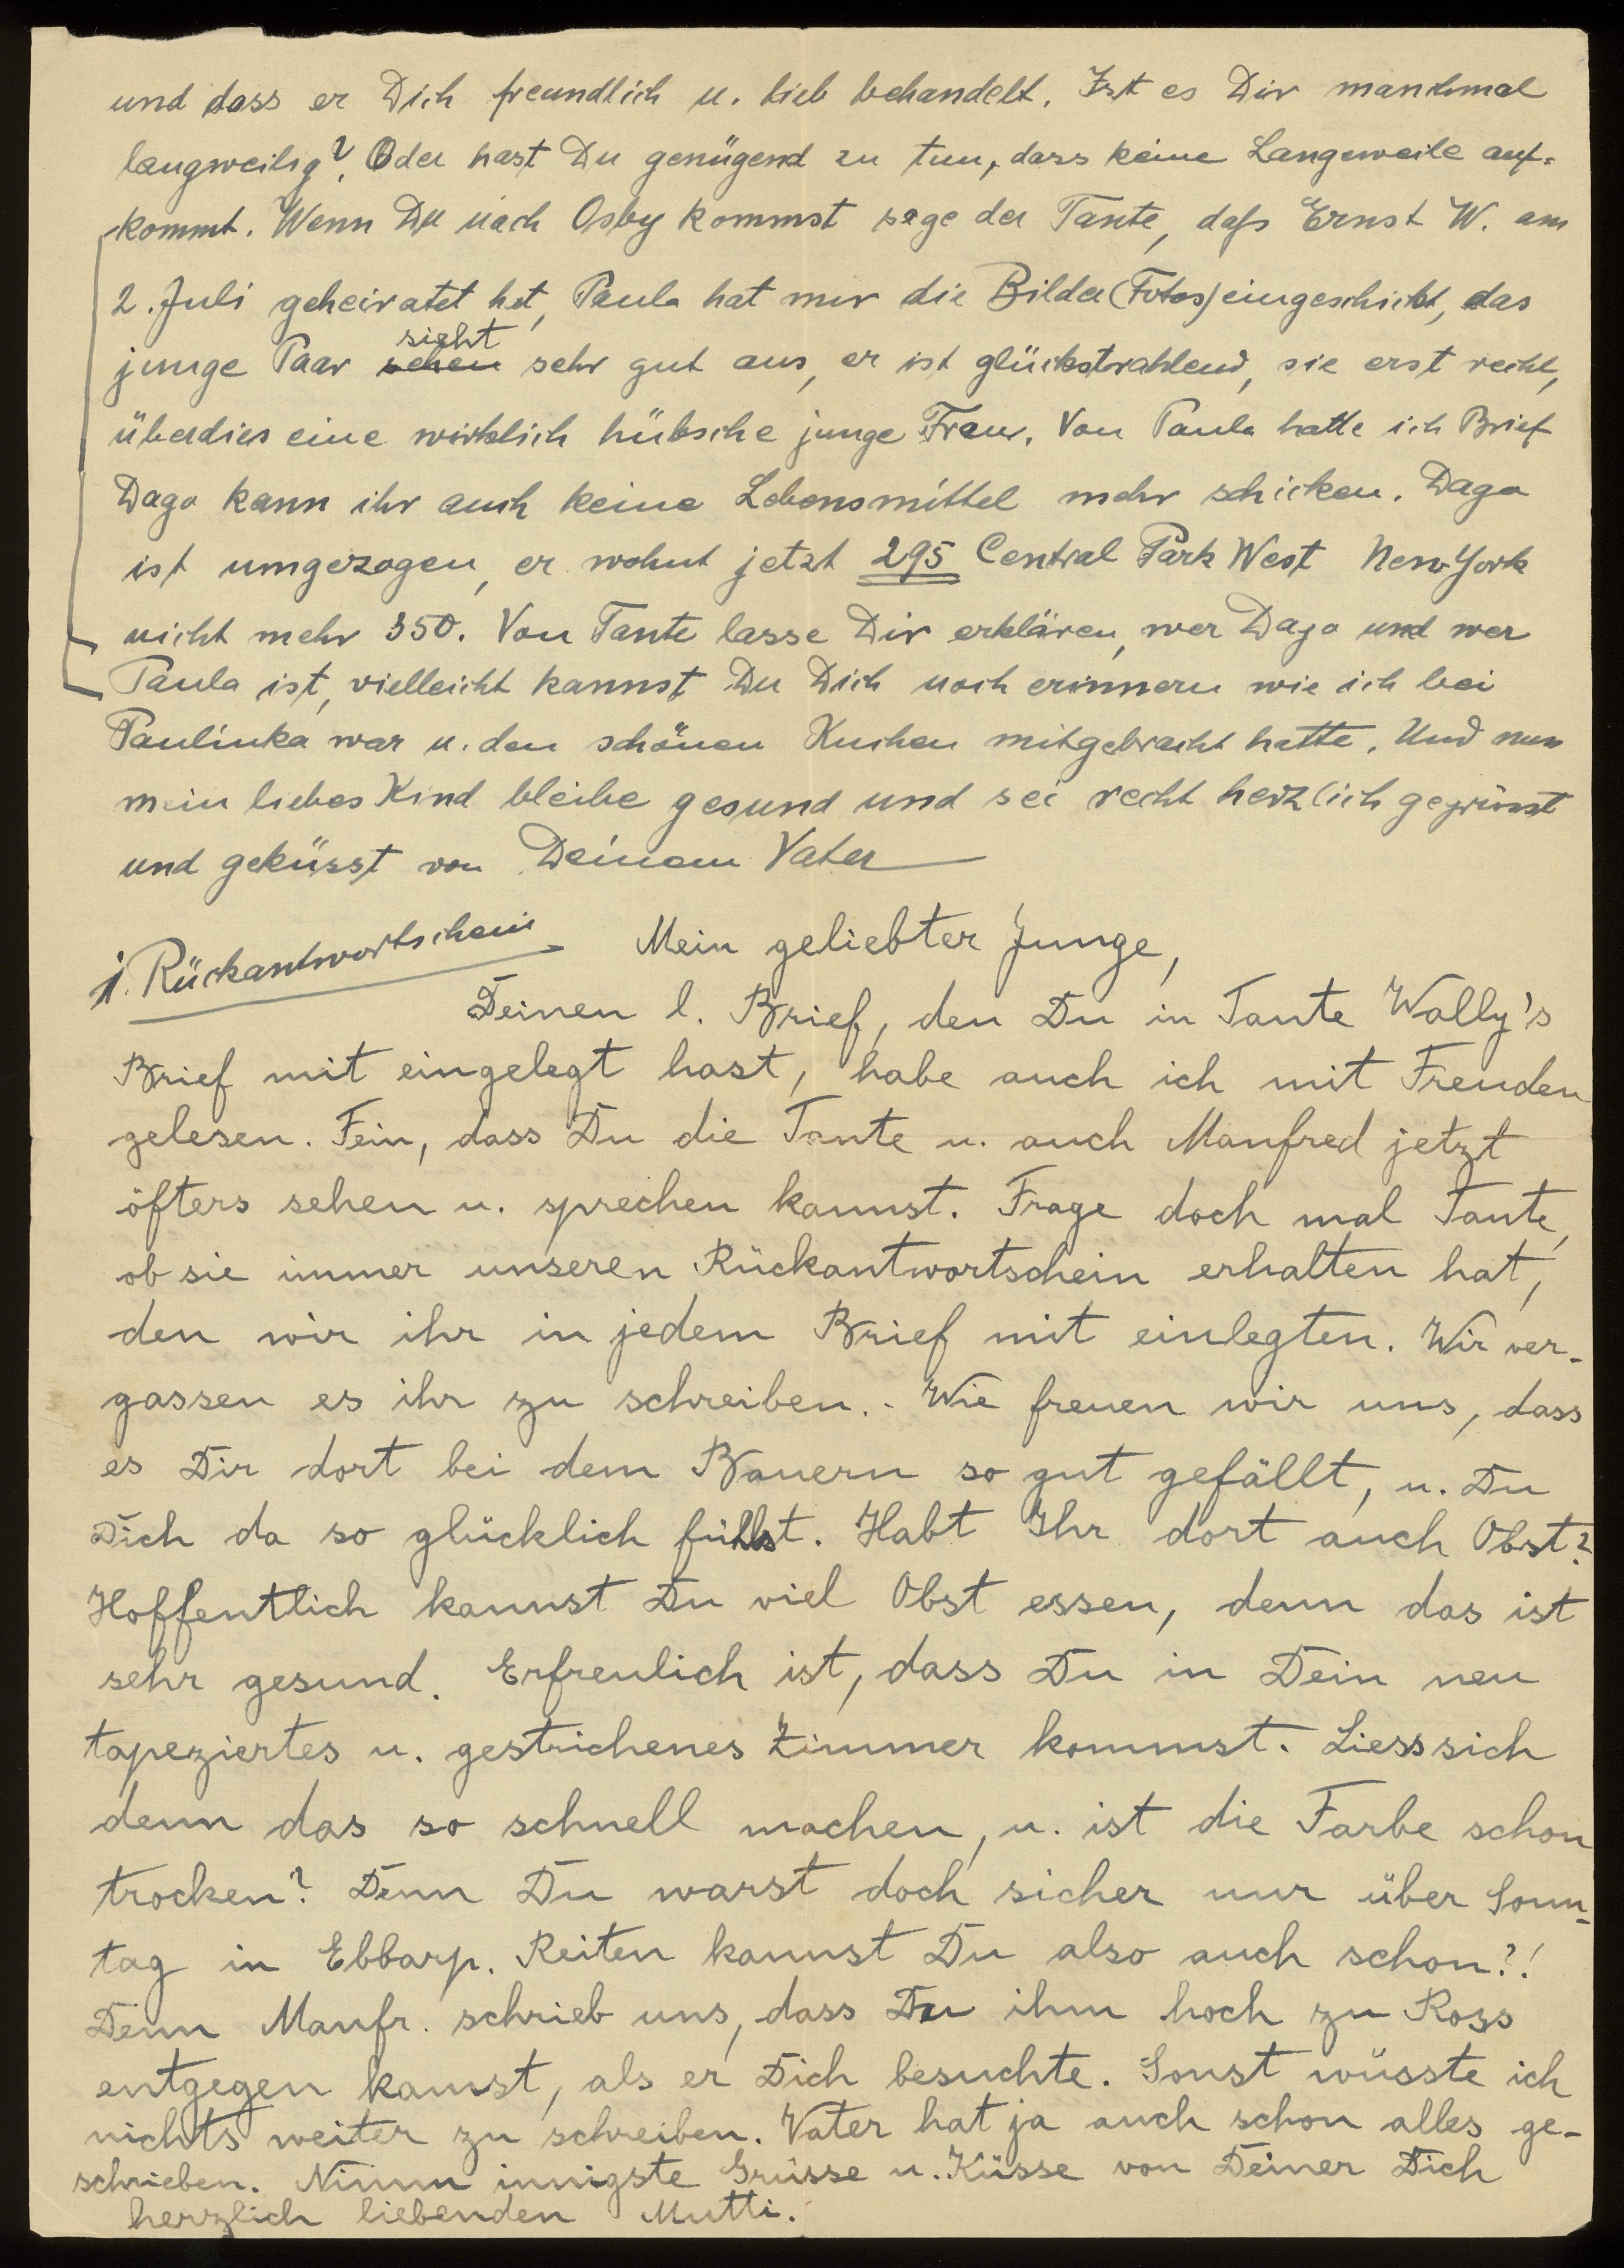 und dass er Dich freundlich u. lieb behandelt. Ist es Dir manchmal
langweilig? Oder hast Du genügend zu tun, dass keine Langeweile auf-
kommt. Wenn Du nach Osby kommst sage der Tante, daß Ernst W. am
2. Juli geheiratet hat, Paula hat mir die Bilder (Fotos) eingeschickt, das
junge Paar sehen sieht sehr gut aus, er ist glückstrahlend, sie erst recht,
überdies eine wirklich hübsche junge Frau. Von Paula hatte ich Brief
Dago kann ihr auch keine Lebensmittel mehr schicken. Dago
ist umgezogen, er wohnt jetzt 295 Central Park West New-York
nicht mehr 350. Von Tante lasse Dir erklären, wer Dago und wer
Paula ist, vielleicht kannst Du Dich noch erinnern wie ich bei
Paulinka war u. den schönen Kuchen mitgebracht hatte. Und nun
mein liebes Kind bleibe gesund und sei recht herzlich gegrüsst
und geküsst von Deinem Vater
1. Rückantwortschein
Mein geliebter Junge,
Deinen l. Brief, den Du in Tante Wally's
Brief mit eingelegt hast, habe auch ich mit Freuden
gelesen. Fein, dass Du die Tante u. auch Manfred jetzt
öfters sehen u. sprechen kannst. Frage doch mal Tante,
ob sie immer unseren Rückantwortschein erhalten hat,
den wir ihr in jedem Brief mit einlegten. Wir ver-
gassen es ihr zu schreiben. - Wie freuen wir uns, dass
es Dir dort bei dem Bauern so gut gefällt, u. Du
Dich da so glücklich fühlst. Habt Ihr dort auch Obst?
Hoffentlich kannst Du viel Obst essen, denn das ist
sehr gesund. Erfreulich ist, dass Du in Dein neu
tapeziertes u. gestrichenes Zimmer kommst. Liess sich
denn das so schnell machen, u. ist die Farbe schon
trocken? Denn Du warst doch sicher nur über Sonn-
tag in Ebbarp. Reiten kannst Du also auch schon?!
Denn Manfr. schrieb uns, dass Du ihm hoch zu Ross
entgegen kamst, als er Dich besuchte. Sonst wüsste ich
nichts weiter zu schreiben. Vater hat ja auch schon alles ge-
schrieben. Nimm innigste Grüsse u. Küsse von Deiner Dich
herzlich liebenden Mutti.